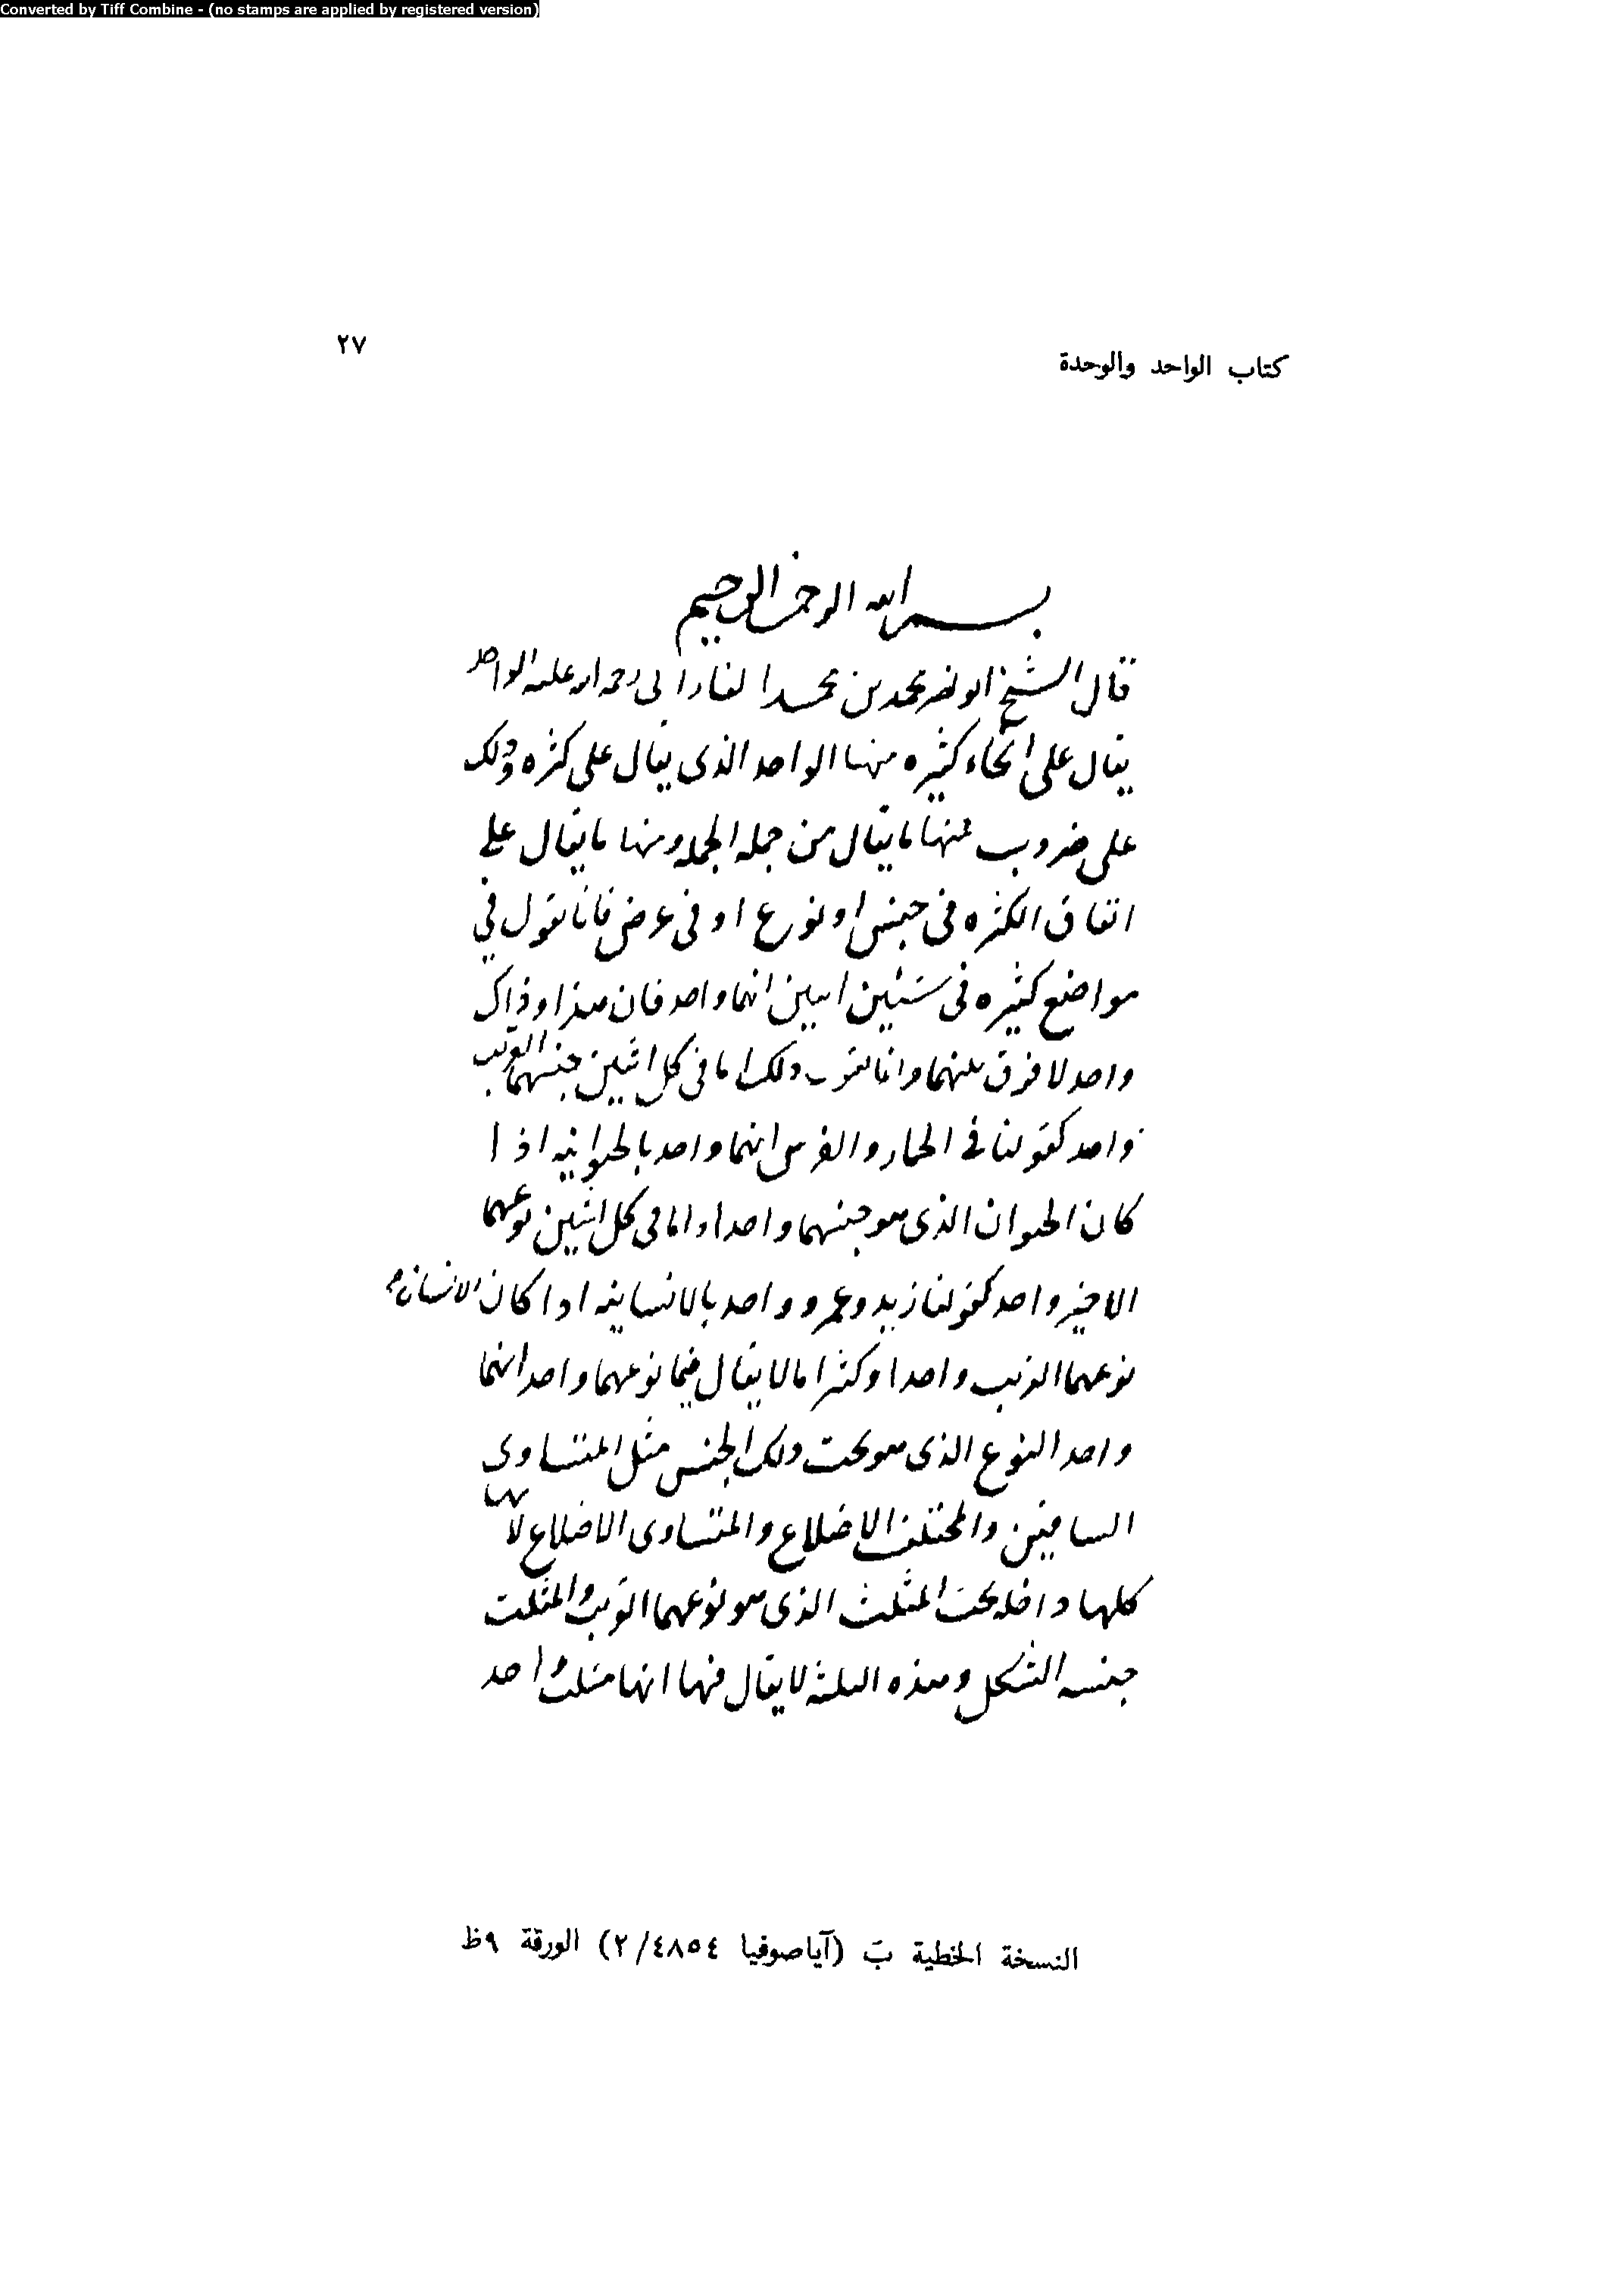 Converted by Tiff Combine - (no stamps are applied by registered version)
كتاب الواحد والوحدة
٢٧
بسم الله الرحمن الرحيم
قال الشيخ ابو نصر محمد بن محمد الفارابى رحمه الله عليه الواحد
يقال على انحاء كثيره منها الواحد الذى يقال على كثره وذلك
على ضروب منها ما يقال من جمله الجمله ومنها ما يقال على
اتفاق الكثره فى جنس او نوع او فى عرض فانا نقول فى
مواضع كثيره فى شيئين اثنين انهما واحد فان هذا وذاك
واحد لا فرق بينهما وانا نقول ذلك اما فى كل اثنين جنسهما القريب
واحد كقولنا فى الحمار والفرس انهما واحد بالحيوانيه اذا
كان الحيوان الذى هو جنسهما واحدا واما فى كل اثنين نوعهما
الاخير واحد كقولنا زيد وعمرو واحد بالانسانيه اذا كان الانسان
نوعهما القريب واحدا وكثيرا ما لا يقال فيما نوعهما واحد انهما
واحد النوع الذى هو تحت ذلك الجنس مثل المتساوى
الساقين والمختلف الاضلاع والمتساوى الاضلاع لانها
كلها داخله تحت المثلث الذى هو نوعهما القريب والمثلث
جنسه الشكل وهذه الثلثة لا يقال فيها انها مثلث واحد
النسخة الخطية بَ (آياصوفيا ٢/٤٨٥٤) الورقة ٩ظ